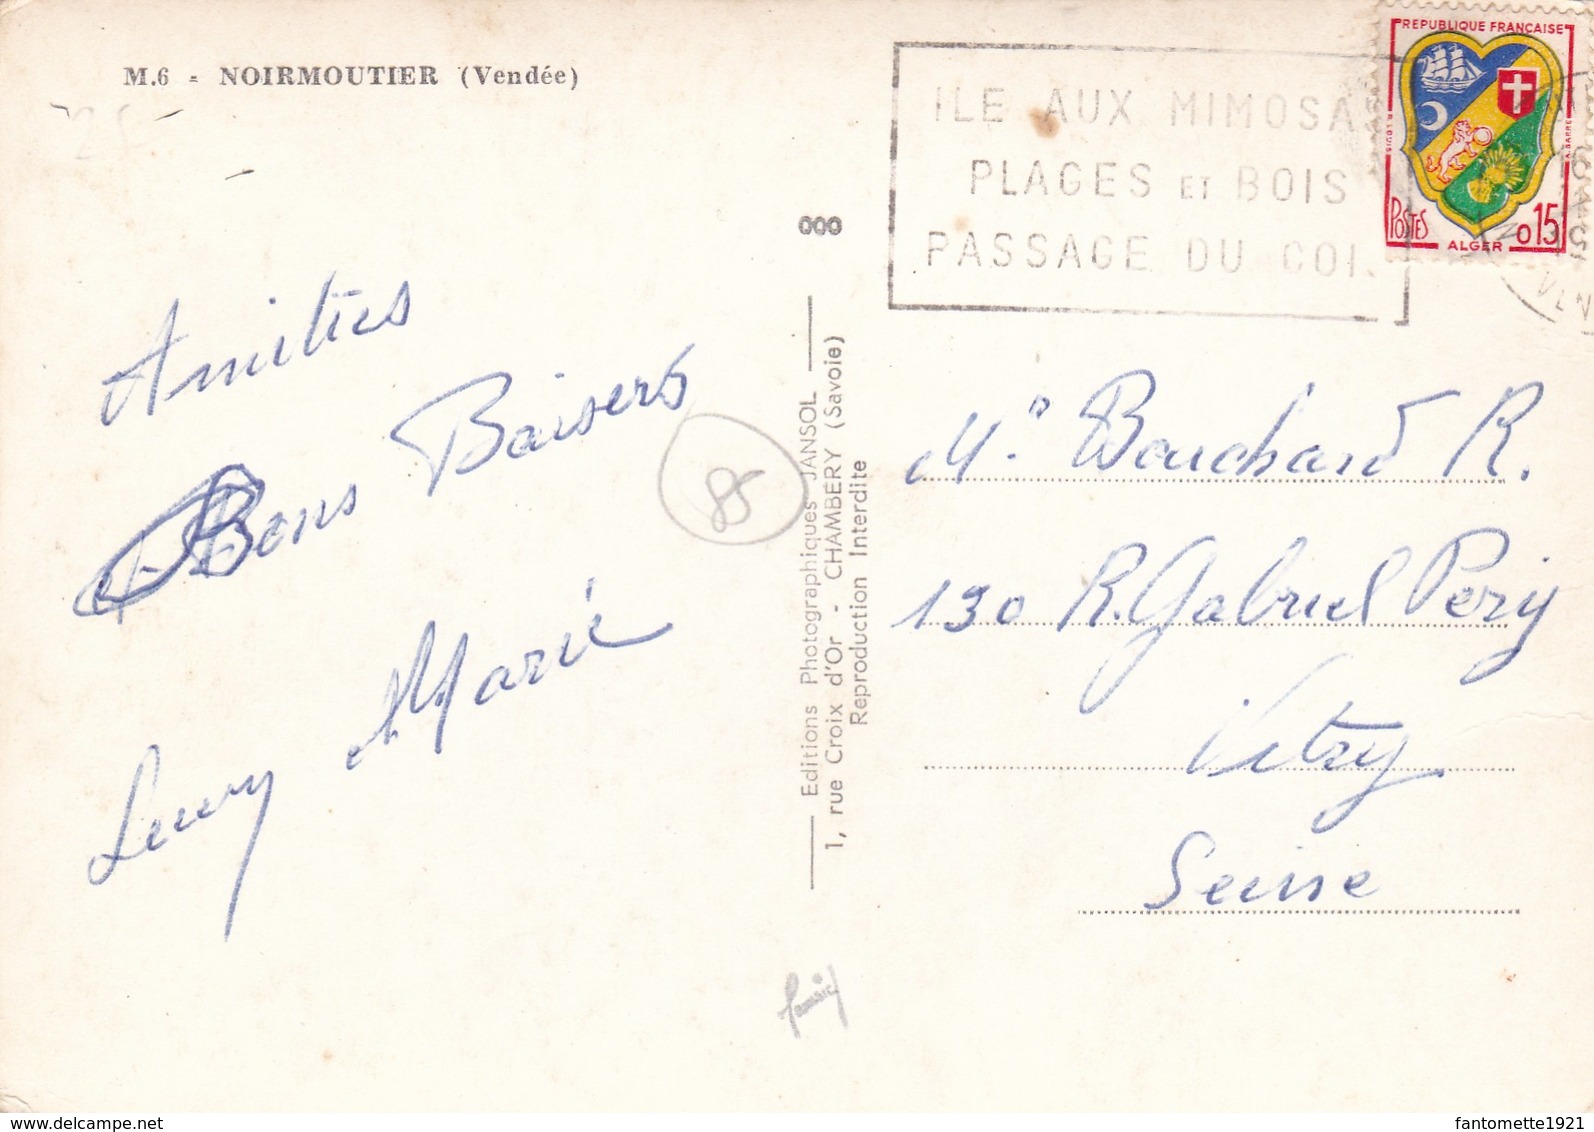 M.6 - NOIRMOUTIER (Vendée)
Amitiés
Bons Baisers
Marie
85
000
Editions Photographiques JANSOL
1, rue Croix d'Or - CHAMBÉRY (Savoie)
Reproduction Interdite
ILE AUX MIMOSAS
PLAGES ET BOIS
PASSAGE DU GOI
REPUBLIQUE FRANÇAISE
POSTES
ALGER
0,15
Mr Bouchard R.
130 R. Gabriel Pery
Vitry
Seine
fantomette1921